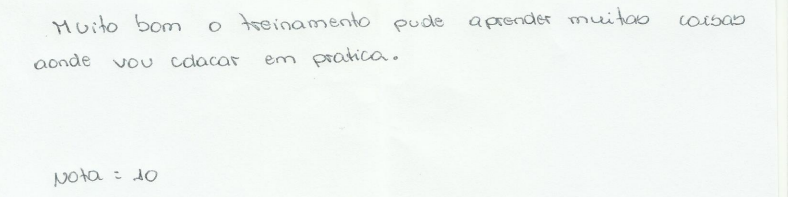 Muito bom o treinamento pude aprender muitas coisas
aonde vou cdacar em pratica.
Nota = 10